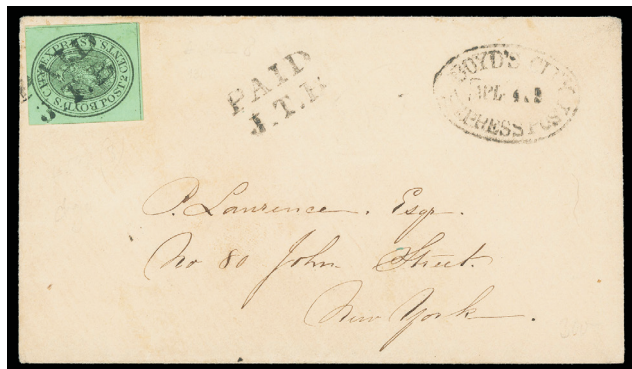 BOYD'S CITY EXPRESS POST 2 CENTS
PAID
J.T.B.
BOYD'S CITY
EXPRESS POST
P. Lawrence. Esqr.
No 80 John Street.
New York.